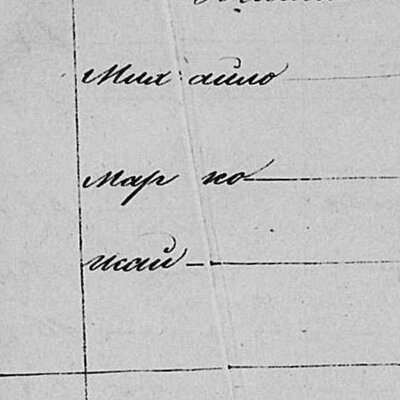 Михайло
Марко
Исай